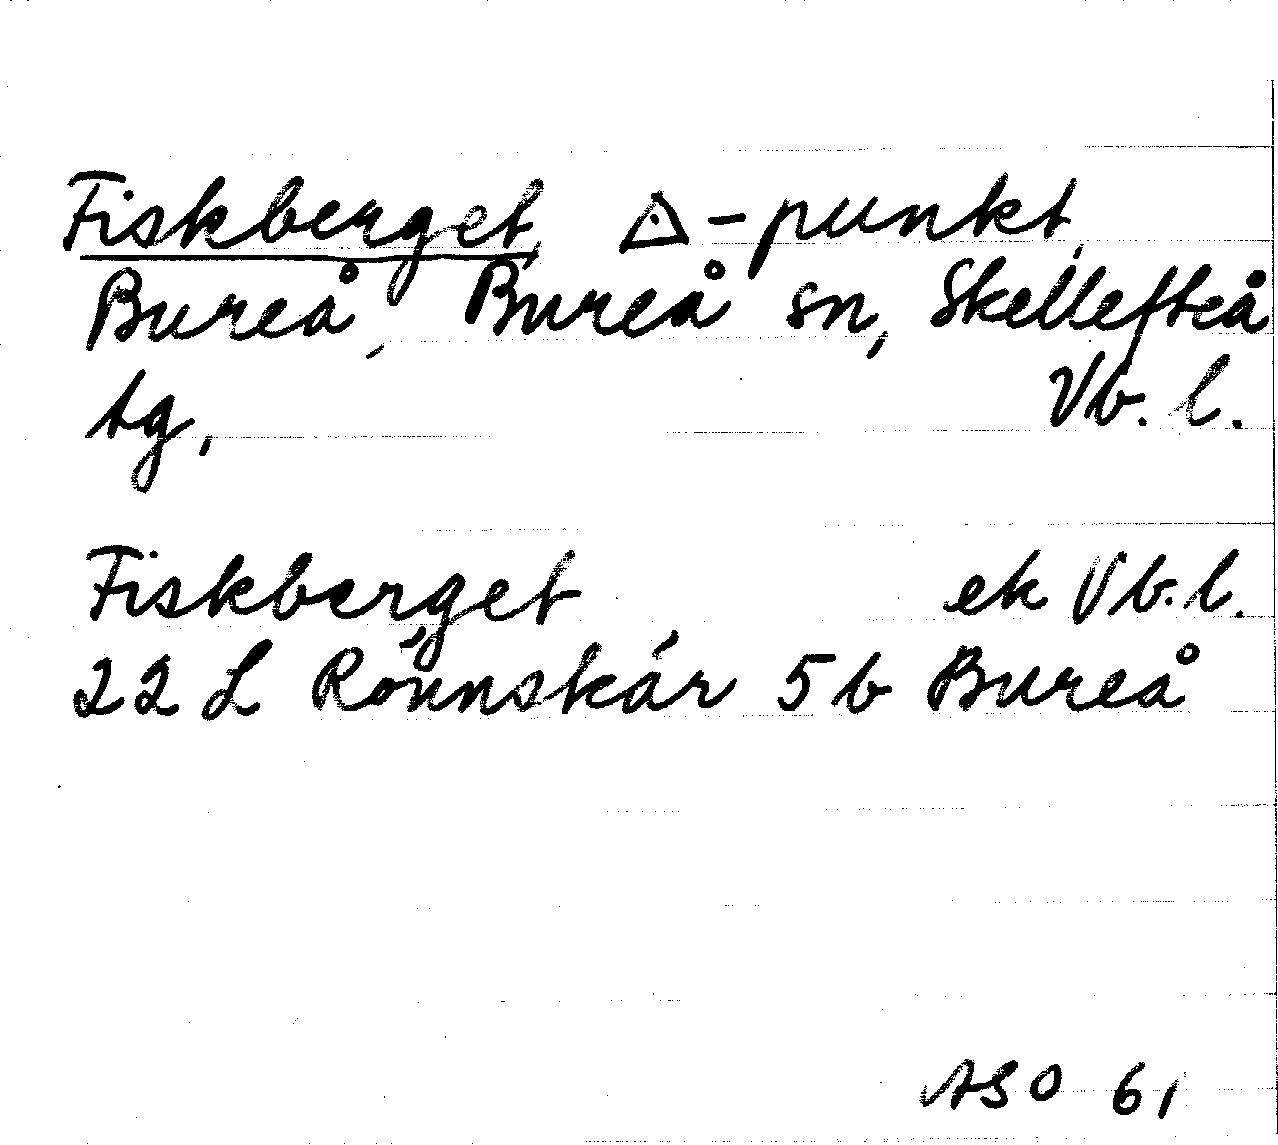 Fiskberget, △-punkt,
Bureå, Bureå sn, Skellefteå
tg, Vb. l.
Fiskberget ek Vb. l.
22 L Rönnskär 5 b Bureå
ASO 61